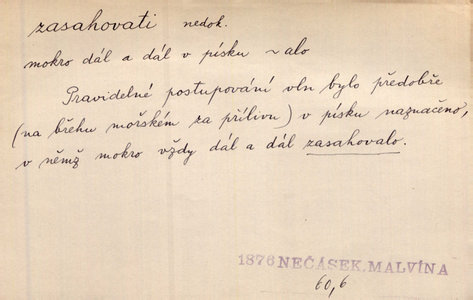 zasahovati nedok.
mokro dál a dál v písku ~alo
Pravidelné postupování vln bylo předobře
(na břehu mořském za přílivu) v písku naznačeno,
v němž mokro vždy dál a dál zasahovalo.
1876 NEČÁSEK, MALVÍNA
60,6